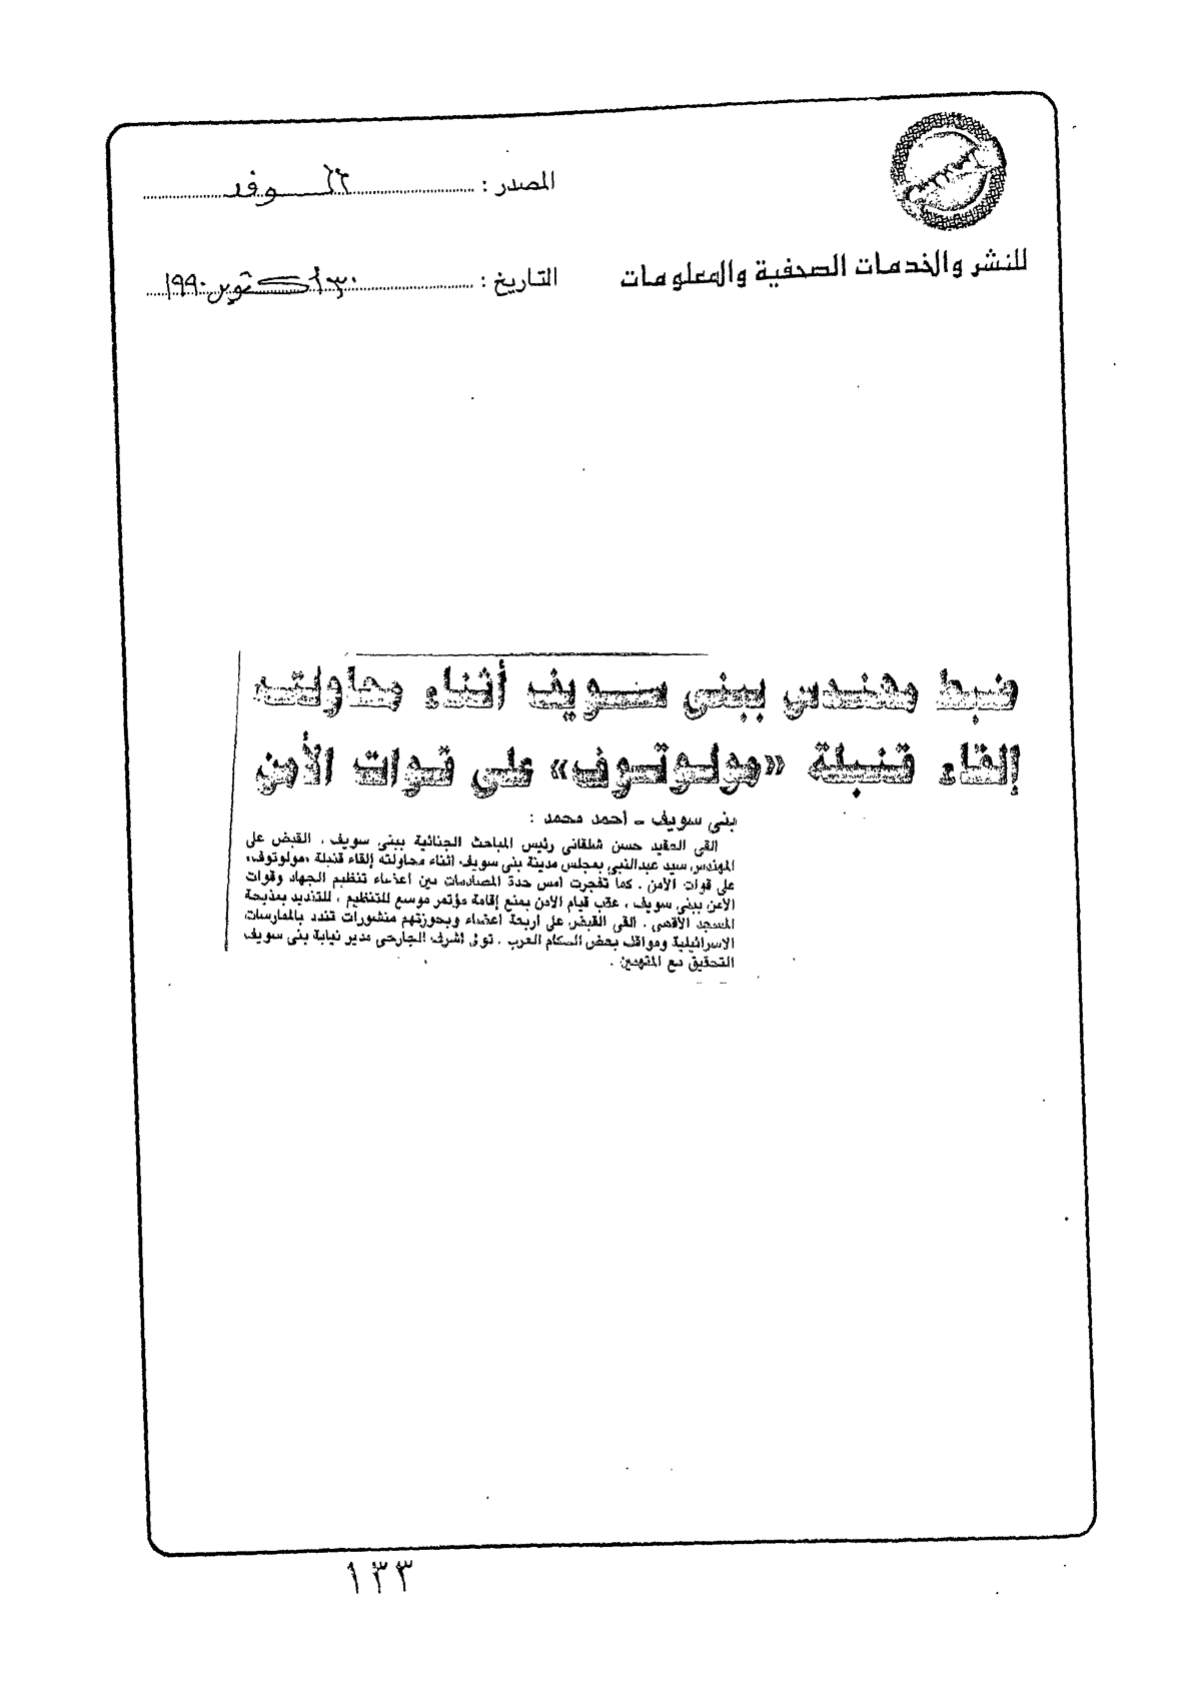 المصدر : الوفد
للنشر والخدمات الصحفية والمعلومات
التاريخ : ٣٠ أكتوبر ١٩٩٠
ضبط مهندس ببنى سويف أثناء محاولته
إلقاء قنبلة «مولوتوف» على قوات الأمن
بنى سويف - أحمد محمد :
القى العقيد حسن شلقانى رئيس المباحث الجنائية ببنى سويف ، القبض على
المهندس سيد عبدالنبى بمجلس مدينة بنى سويف اثناء محاولته إلقاء قنبلة «مولوتوف»
على قوات الأمن . كما تفجرت أمس حدة المصادمات بين أعضاء تنظيم الجهاد وقوات
الأمن ببنى سويف ، عقب قيام الأمن بمنع إقامة مؤتمر موسع للتنظيم ، للتنديد بمذبحة
المسجد الأقصى . القى القبض على اربعة اعضاء وبحوزتهم منشورات تندد بالممارسات
الاسرائيلية ومواقف بعض الحكام العرب . تولى أشرف الجارحى مدير نيابة بنى سويف
التحقيق مع المتهمين .
١٣٣